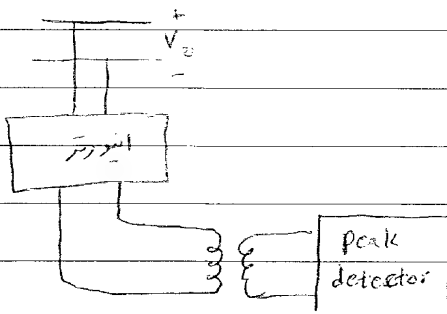 +
V
-
اینورتر
peak
detector